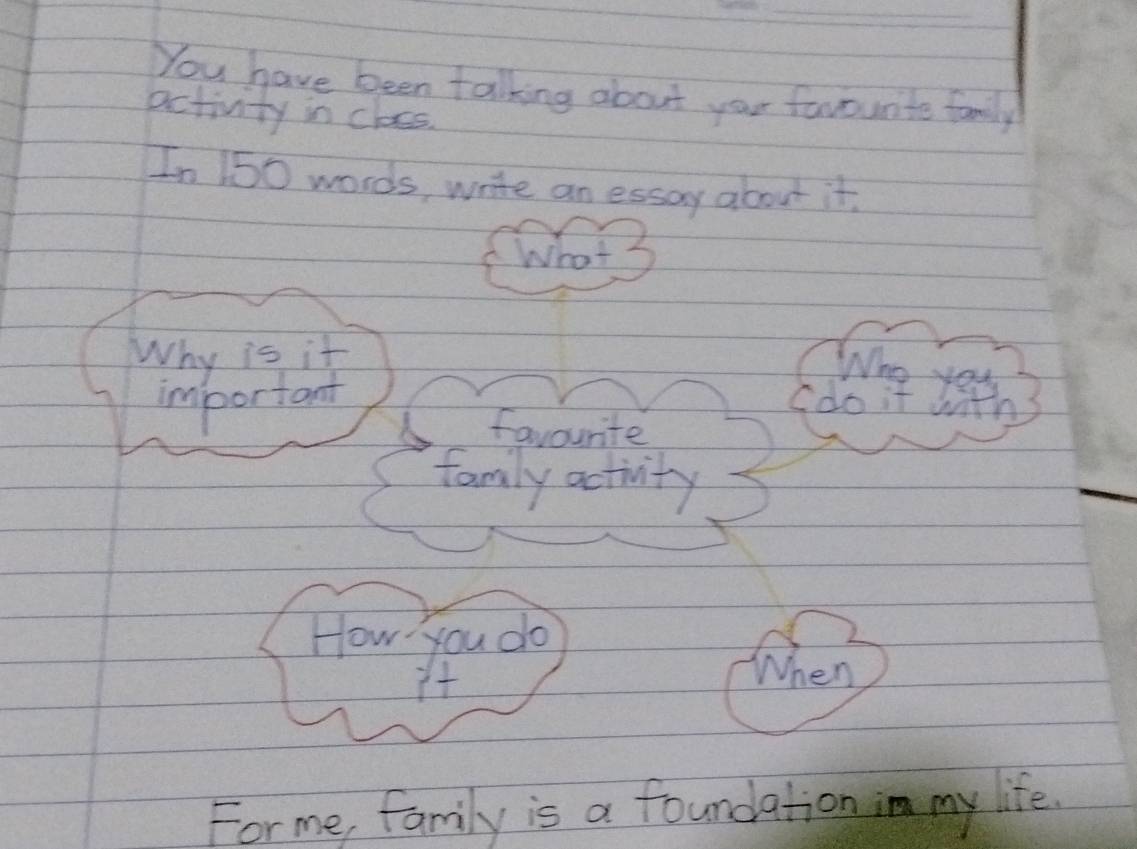 You have been talking about your favourite family
activity in class.
In 150 words, write an essay about it.
What
Why is it
important
Who you
do it with
favourite
family activity
How you do
it
When
For me, family is a foundation in my life.